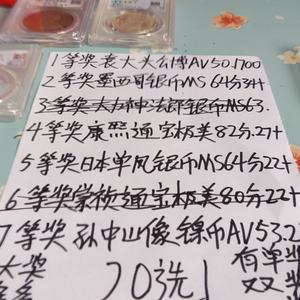 1等奖袁大头公博AV50.1700
2等奖墨西哥银币MS64分34+
3等奖大力神法郎银币MS63.
4等奖康熙通宝极美82分27+
5等奖日本单凤银币MS64分22+
6等奖崇祯通宝极美80分22+
7等奖孙中山像镍币AV53.22
大奖 20洗1 有单奖
双奖